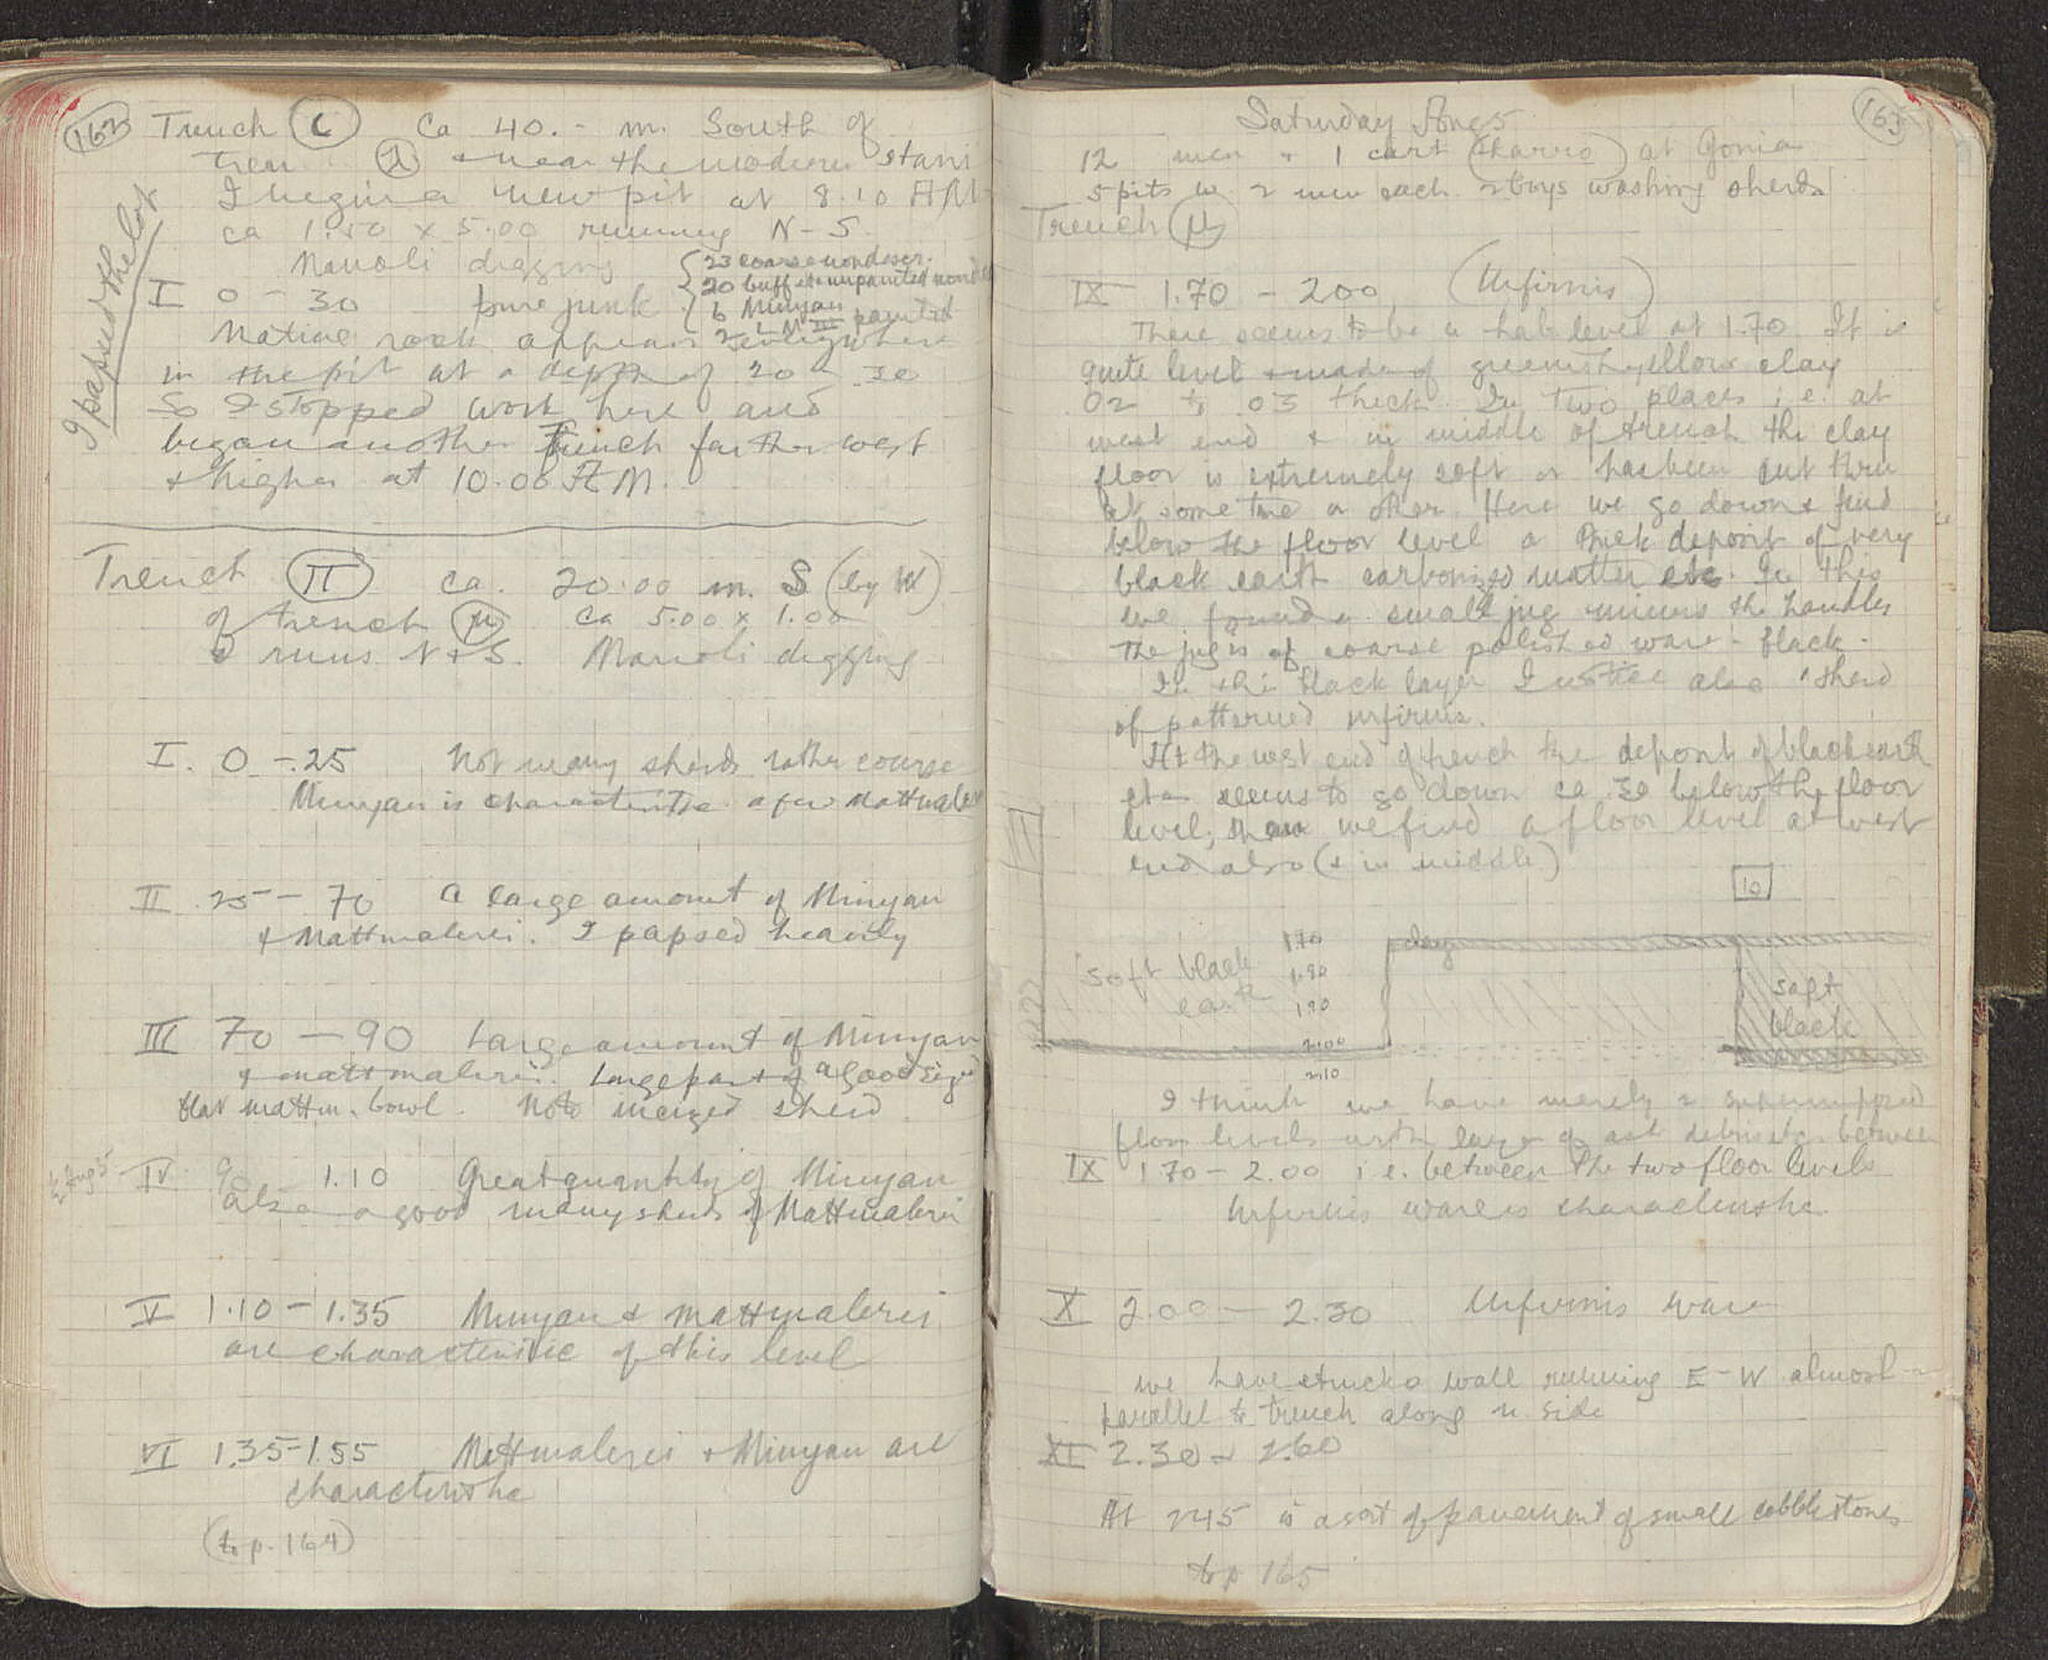 162
Trench C ca 40.- m. South of
tren λ + near the modern stani
I begin a new pit at 8.10 AM
ca 1.50 x 5.00 running N-S.
Manoli digging
I papsed the lot
I 0 - 30 pure junk
23 coarse nondescr.
20 buff unpainted
6 Minyan
2 LM III painted
Native rock appears everywhere
in the pit at a depth of 20 - 30
So I stopped work here and
began another Trench farther west
+ higher at 10.00 AM.
Trench Π ca. 20.00 m. S (by W)
of trench μ ca 5.00 x 1.00
& runs N + S. Manoli digging
I. 0 - .25 Not many sherds rather coarse
Minyan is characteristic a few Mattmalerei
II 25 - 70 A large amount of Minyan
& Mattmalerei. I papsed heavily
III 70 - 90 Large amount of Minyan
& mattmalerei. Large part of a good sized
flat mattm. bowl. Note incized sherd
Aug 5 IV 90 1.10 Great quantity of Minyan
also a good many sherds of Mattmalerei
V 1.10 - 1.35 Minyan & mattmalerei
are characteristic of this level
VI 1.35-1.55 Mattmalerei + Minyan are
characteristic
(to p. 164)
163
Saturday Aug 5
12 men + 1 cart (Karro) at Gonia
5 pits w. 2 men each 2 boys washing sherds
Trench μ
IX 1.70 - 200 (Urfirnis)
There seems to be a hab level at 1.70 It is
quite level + made of greenish yellow clay
02 to .03 thick. In two places i.e. at
west end + in middle of trench the clay
floor is extremely soft or has been cut thru
at some time or other. Here we go down & find
below the floor level a thick deposit of very
black earth carbonized matter etc. In this
we found a small jug minus the handles
the jug is of coarse polished ware - black.
In this black layer I notice also 1 sherd
of patterned urfirnis.
At the west end of trench the deposit of black earth
etc seems to go down ca 30 below the floor
level, then we find a floor level at west
end also (+ in middle)
10
1.70
clay
soft black
earth
1.80
1.90
2.00
2.10
soft
black
I think we have merely 2 superimposed
floor levels with layer of ash debris etc between
IX 1.70 - 2.00 i.e. between the two floor levels
Urfirnis ware is characteristic
X 2.00 - 2.30 Urfirnis ware
we have struck a wall running E-W almost
parallel to trench along n. side
XI 2.30 - 2.60
At 245 is a sort of pavement of small cobblestones
to p 165